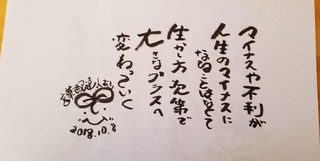 マイナスや不利が
人生のマイナスに
なることはなくて
生かし方次第で
大きなプラスへ
変わっていく
言葉配達人
2018.10.8